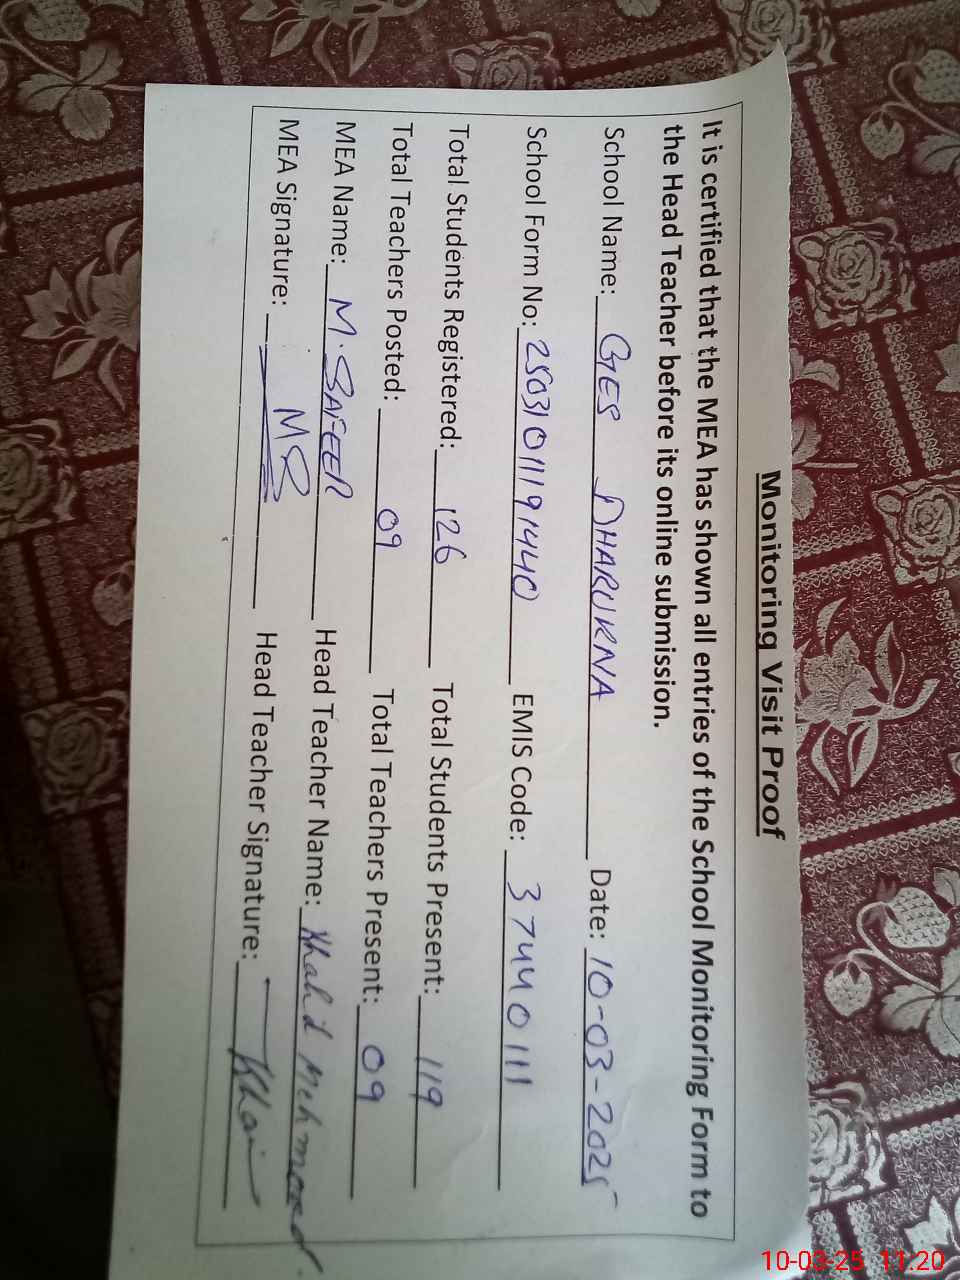 Monitoring Visit Proof
It is certified that the MEA has shown all entries of the School Monitoring Form to
the Head Teacher before its online submission.
School Name: GES DHARUKNA Date: 10-03-2025
School Form No: 25031011191440 EMIS Code: 37440111
Total Students Registered: 126 Total Students Present: 119
Total Teachers Posted: 09 Total Teachers Present: 09
MEA Name: M. SAFEER Head Teacher Name: Khalid Mehmood
MEA Signature: MS Head Teacher Signature:
10-03-25 11:20